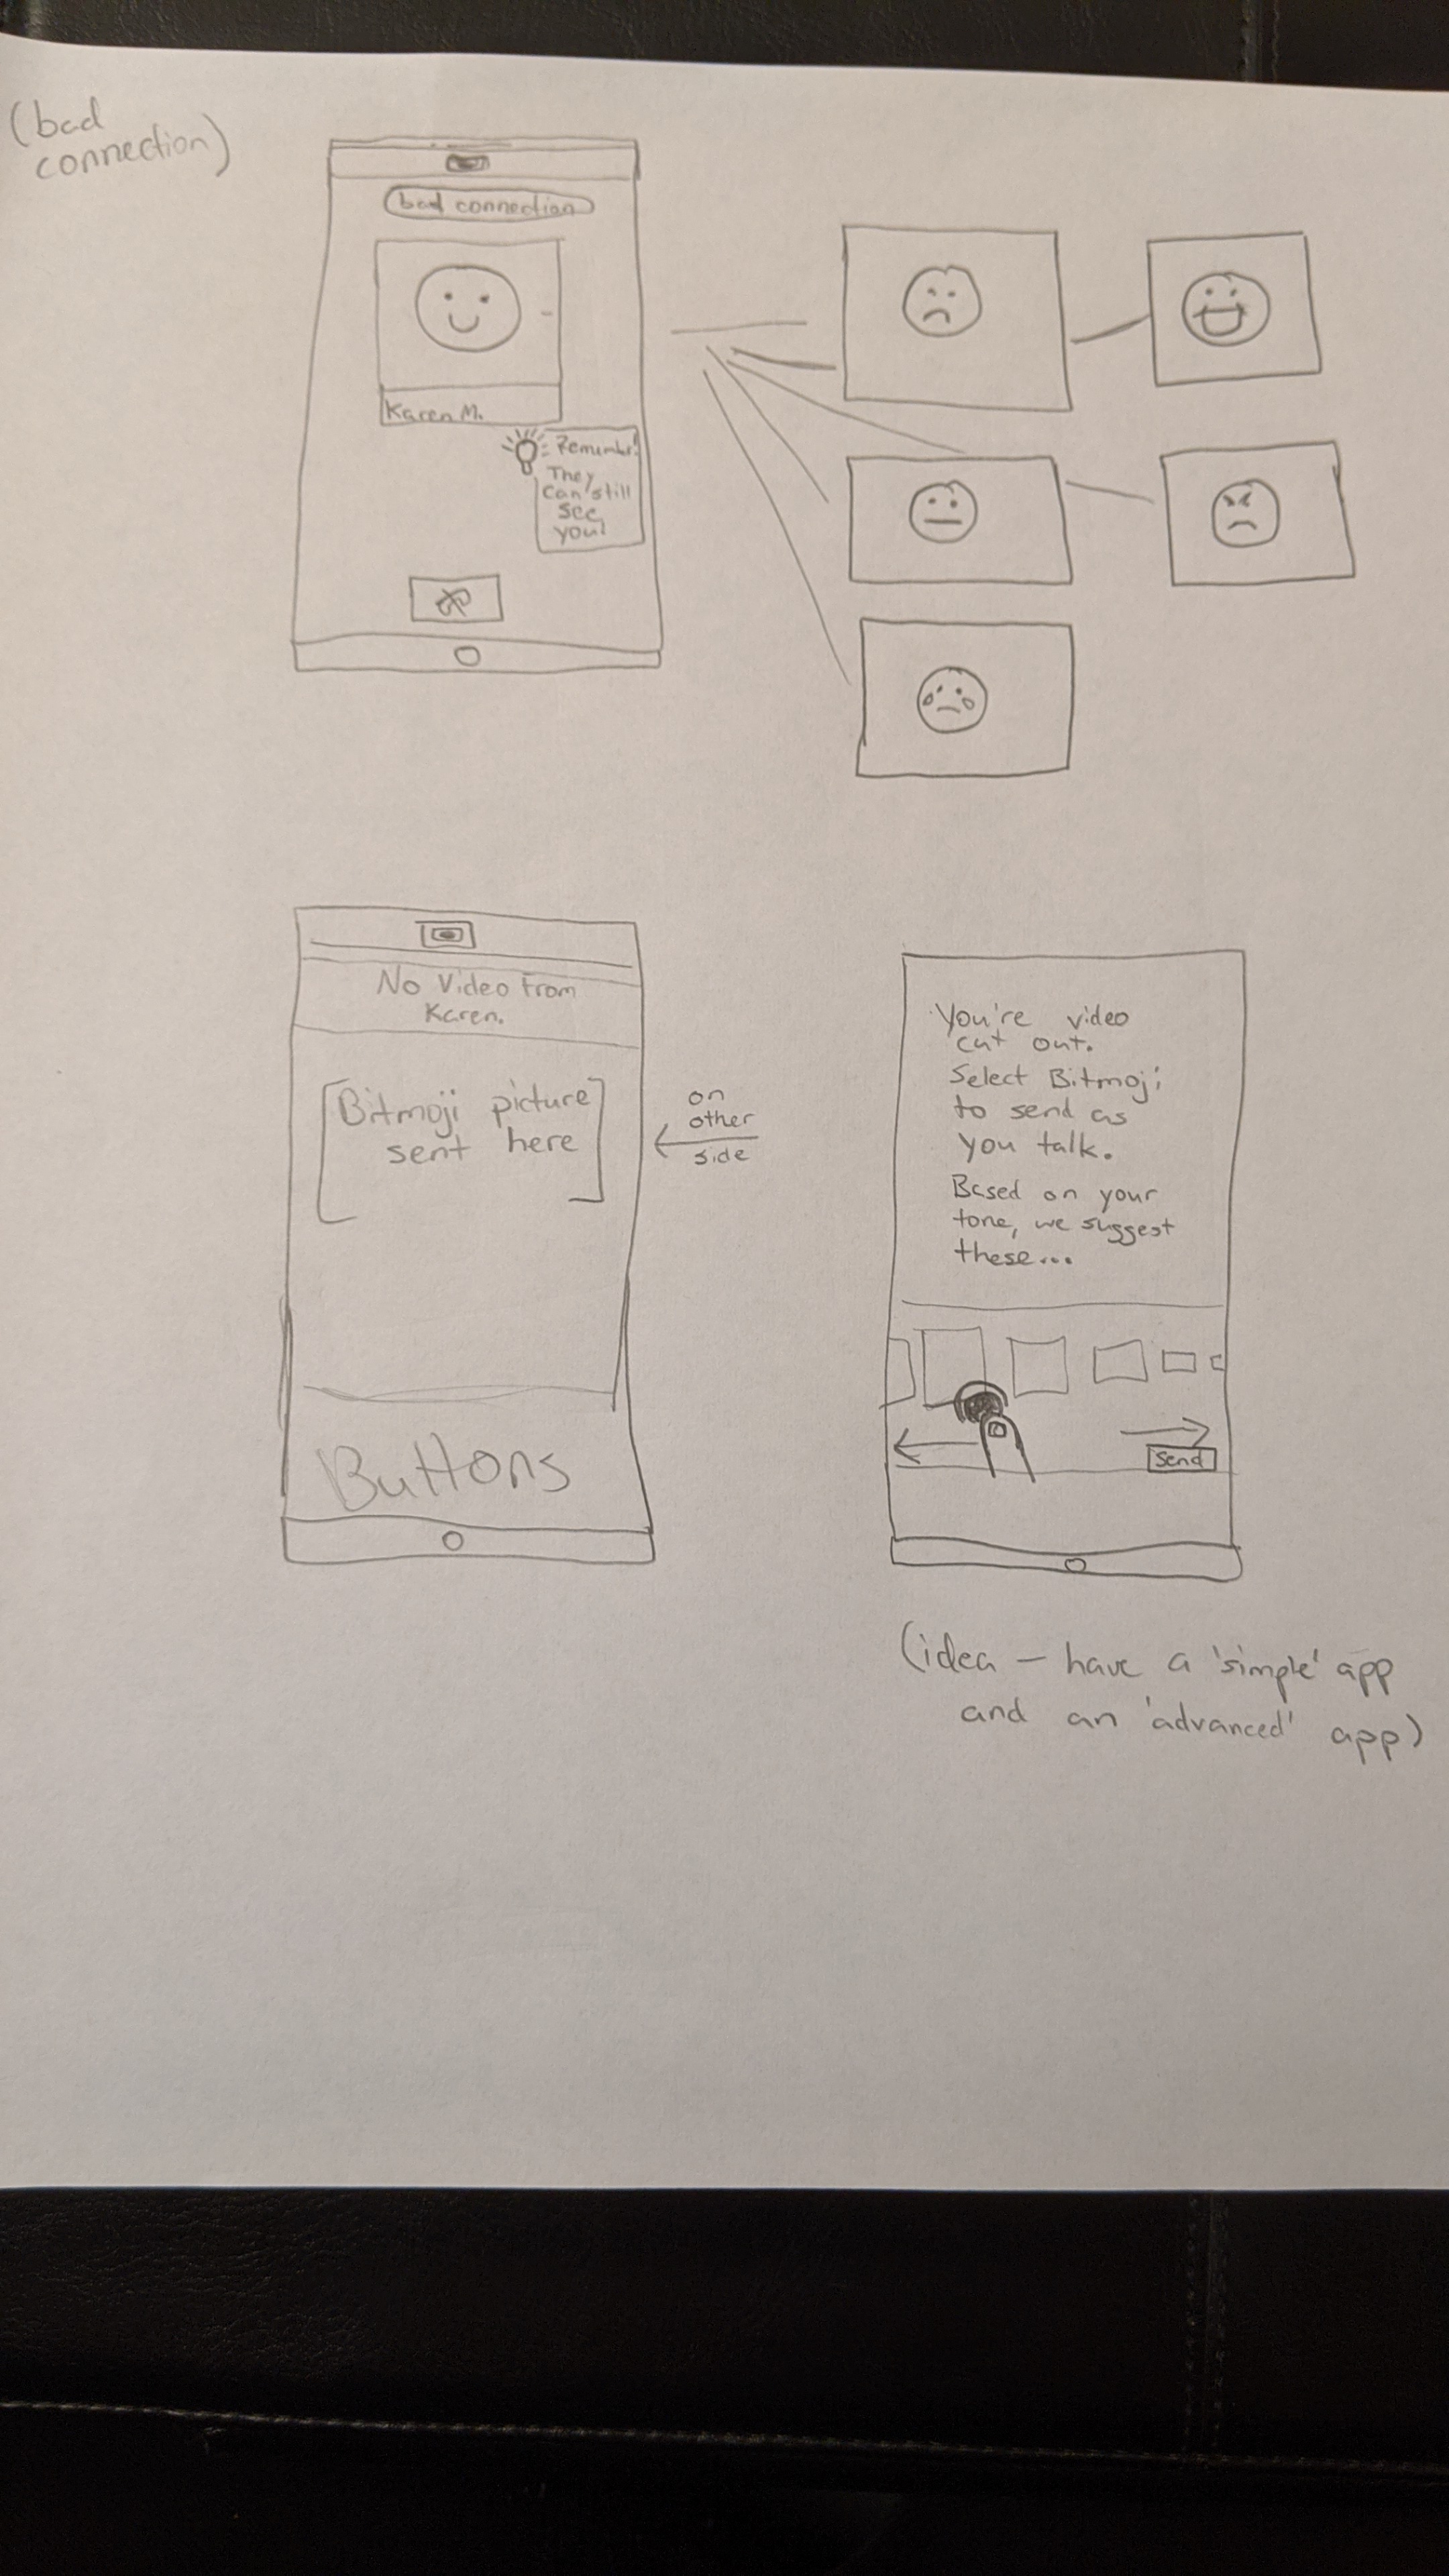 (bad
connection)
bad connection
Karen M.
Remember!
They
can still
see
you!
No Video From
Karen.
[Bitmoji picture
sent here]
on
other
side
Buttons
You're video
cut out.
Select Bitmoji
to send as
you talk.
Based on your
tone, we suggest
these...
Send
(idea – have a 'simple' app
and an 'advanced' app)